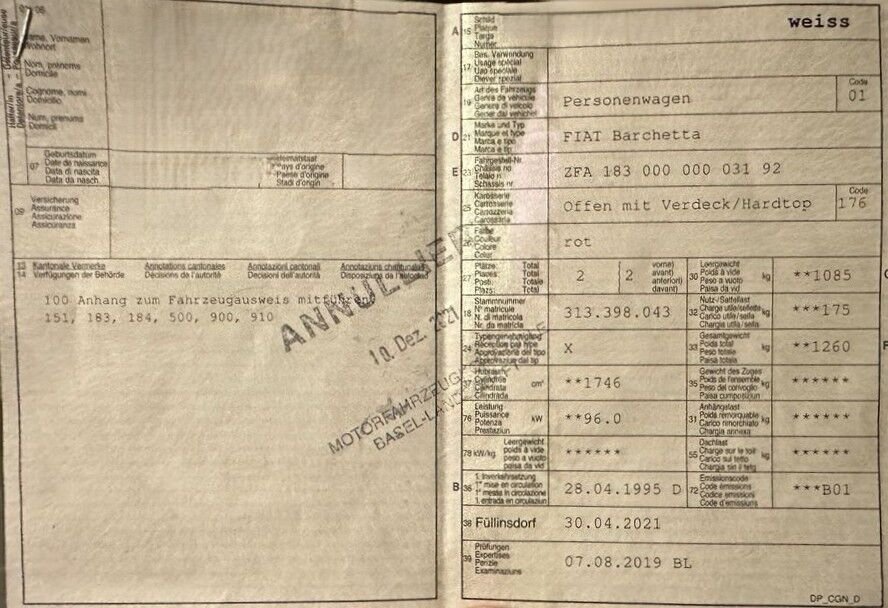 Name, Vornamen
Wohnort
Nom, prénoms
Domicile
Cognome, nomi
Domicilio
Num, prenums
Domicil
07 Geburtsdatum
Date de naissance
Data di nascita
Data da nasch.
Heimatstaat
Pays d'origine
Paese d'origine
Stadi d'origin
09 Versicherung
Assurance
Assicurazione
Assicuranza
13 Kantonale Vermerke Annotations cantonales Annotazioni cantonali Annotaziuns chantunalas
14 Verfügungen der Behörde Décisions de l'autorité Decisioni dell'autorità Disposiziuns da l'autoritad
100 Anhang zum Fahrzeugausweis mitführen
151, 183, 184, 500, 900, 910
ANNULLIERT
10. Dez. 2021
BASEL-LANDSCHAFT
A 15 Schild
Plaque
Targa
Numer
weiss
17 Bes. Verwendung
Usage spécial
Uso speciale
Diever spezial
19 Art des Fahrzeugs
Genre de véhicule
Genere di veicolo
Gener dal vehichel
Personenwagen
Code
01
D 21 Marke und Typ
Marque et type
Marca e tipo
Marca e tip
FIAT Barchetta
E 23 Fahrgestell-Nr.
Châssis no
Telaio n.
Schassis nr.
ZFA 183 000 000 031 92
25 Karosserie
Carrosserie
Carrozzeria
Carossaria
Offen mit Verdeck/Hardtop
Code
176
26 Farbe
Couleur
Colore
Colur
rot
27 Plätze: Total
Places: Total
Posti: Totale
Plazs: Total
2
2
vorne)
avant)
anteriori)
davant)
30 Leergewicht
Poids à vide
Peso a vuoto
Paisa da vid
kg
**1085
18 Stammnummer
N° matricule
N. di matricola
Nr. da matricla
313.398.043
32 Nutz-/Sattellast
Charge utile/sellette
Carico utile/sella
Chargia utila/sella
kg
***175
24 Typengenehmigung
Réception par type
Approvazione del tipo
Approvaziun dal tip
X
33 Gesamtgewicht
Poids total
Peso totale
Paisa totala
kg
**1260
37 Hubraum
Cylindrée
Cilindrata
Cilindrada
cm³
**1746
35 Gewicht des Zuges
Poids de l'ensemble
Peso del convoglio
Paisa cumposiziun
kg
******
76 Leistung
Puissance
Potenza
Prestaziun
kW
**96.0
31 Anhängelast
Poids remorquable
Carico rimorchiato
Chargia annexa
kg
******
78 kW/kg Leergewicht
poids à vide
peso a vuoto
paisa da vid
******
55 Dachlast
Charge sur le toit
Carico sul tetto
Chargia sin il tetg
kg
******
B 36 1. Inverkehrsetzung
1re mise en circulation
1a messa in circolazione
1. entrada en circulaziun
28.04.1995 D
72 Emissionscode
Code émissions
Codice emissioni
Code d'emissiuns
***B01
38 Füllinsdorf 30.04.2021
39 Prüfungen
Expertises
Perizie
Examinaziuns
07.08.2019 BL
DP_CGN_D